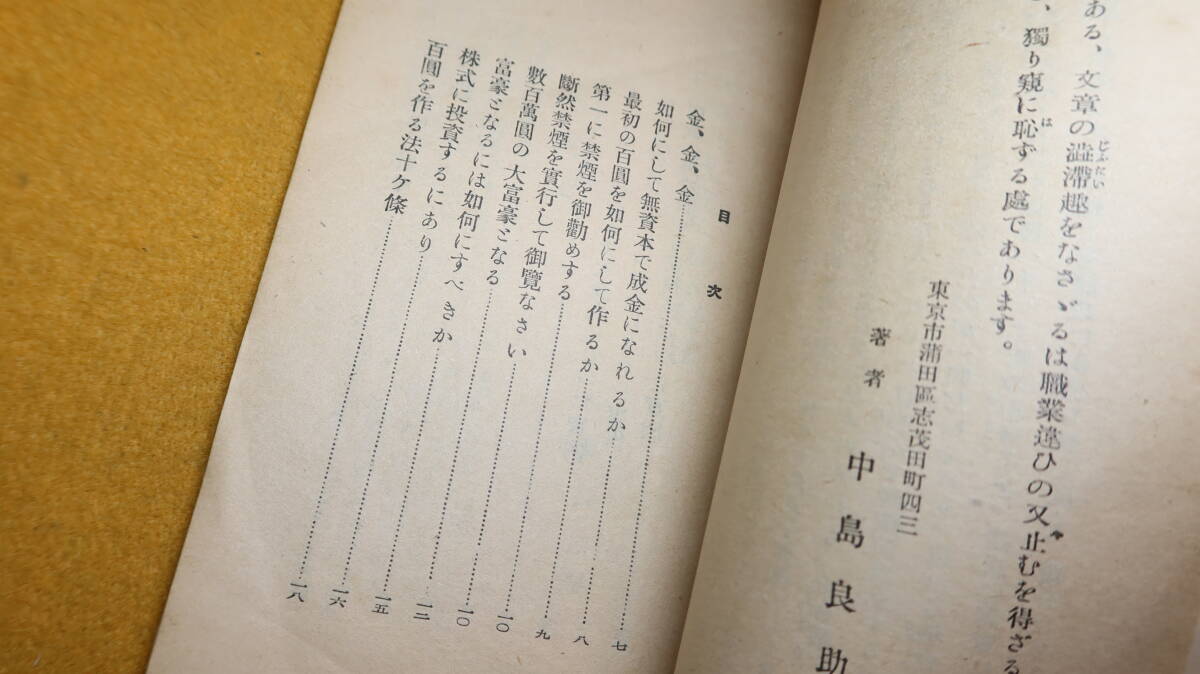 ある、文章の澁滯趣をなさゞるは職業違ひの又止むを得ざる
、獨り窺に恥ずる處であります。
東京市蒲田區志茂田町四三
著者 中島良助
目次
金、金、金……七
如何にして無資本で成金になれるか……八
最初の百圓を如何にして作るか……九
第一に禁煙を御勸めする……一〇
斷然禁煙を實行して御覽なさい……一〇
數百萬圓の大富豪となる……一二
富豪となるには如何にすべきか……一五
株式に投資するにあり……一六
百圓を作る法十ケ條……一八